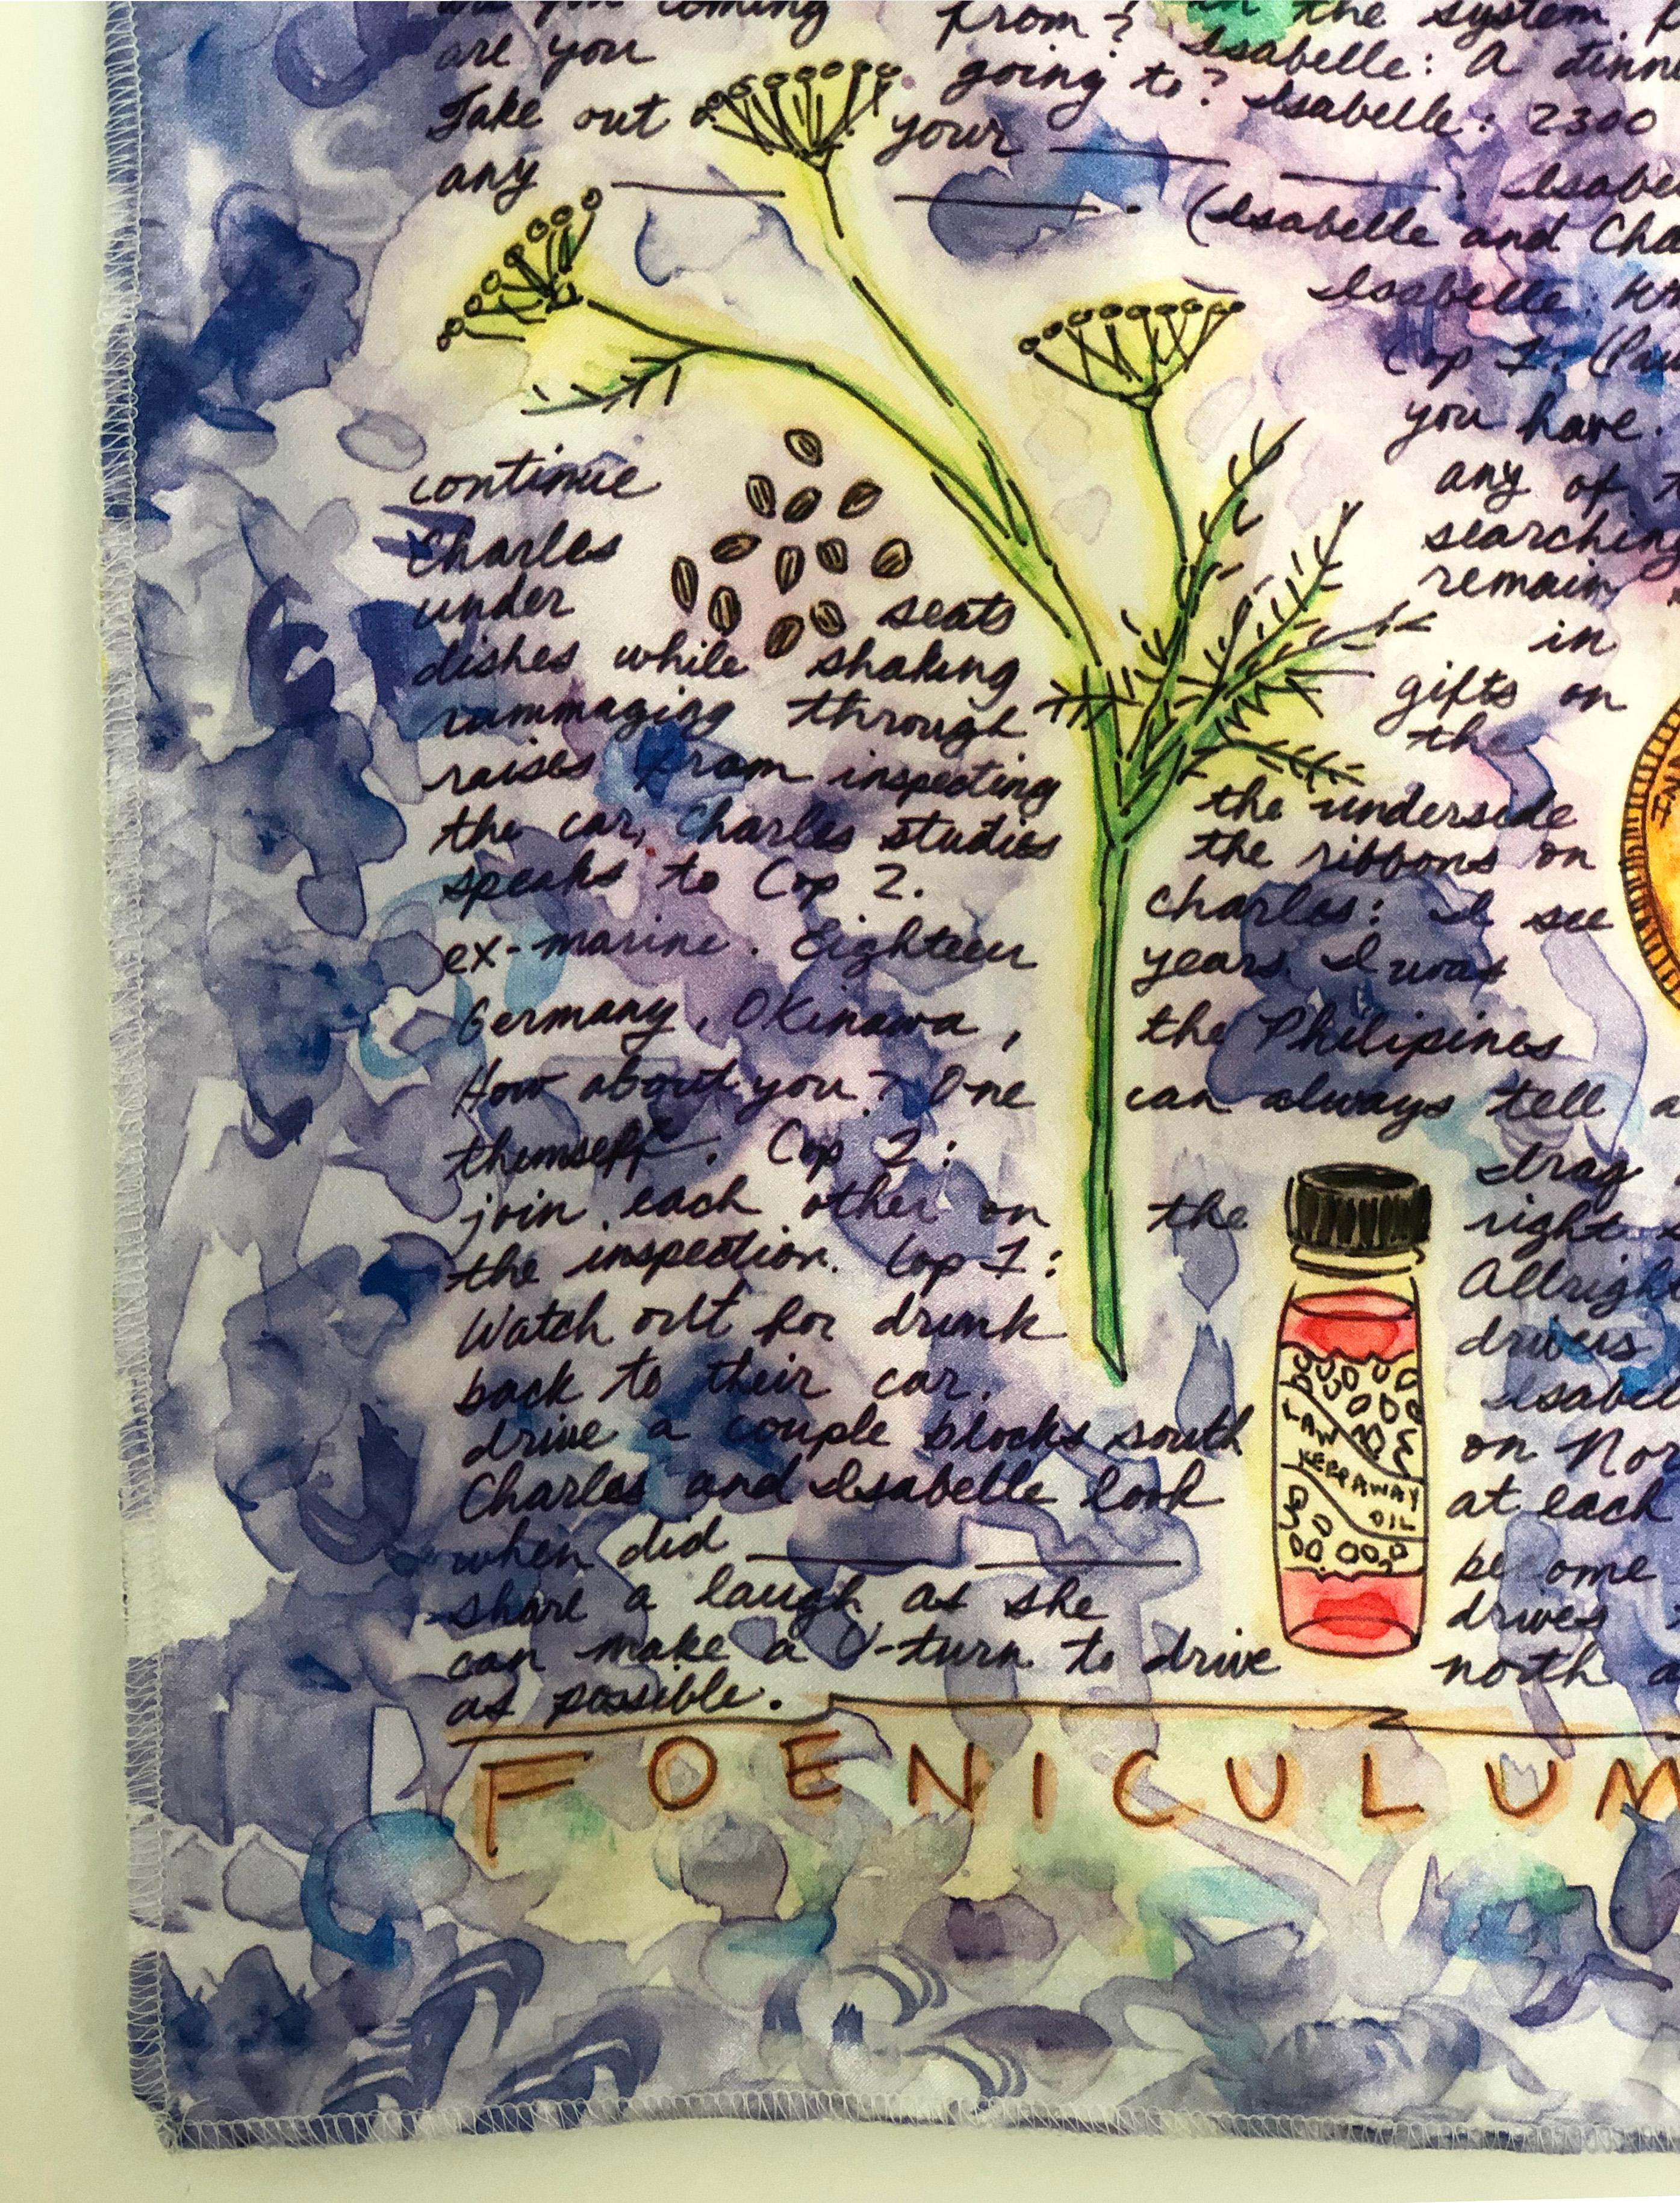 are you coming from? in the system.
are you going to? Isabelle: A dinne
Take out your Isabelle: 2300
any . Isabe
(Isabelle and Cha
Isabelle:
Cop 1: (Pau
you have.
continue any of
Charles searching
under seats remain
dishes while shaking in
rummaging through gifts on
raises from inspecting the
the car, Charles studies the underside
speaks to Cop 2. the ribbons on
Charles: I see
ex-marine. Eighteen years. I was
Germany, Okinawa, the Philipines
How about you? One can always tell a
themself. Cop 2: drag
join each other on the right
the inspection. Cop 1: Allrigh
Watch out for drunk drivers
back to their car. Isabel
drive a couple blocks south on Nor
Charles and Isabelle look at each
when did become
share a laugh as she drives
can make a U-turn to drive north a
as possible.
LAW
KEEPAWAY
OIL
FOENICULUM